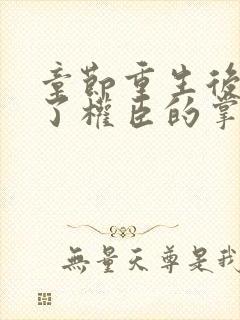 童節重生後
了權臣的掌
無量天尊是我